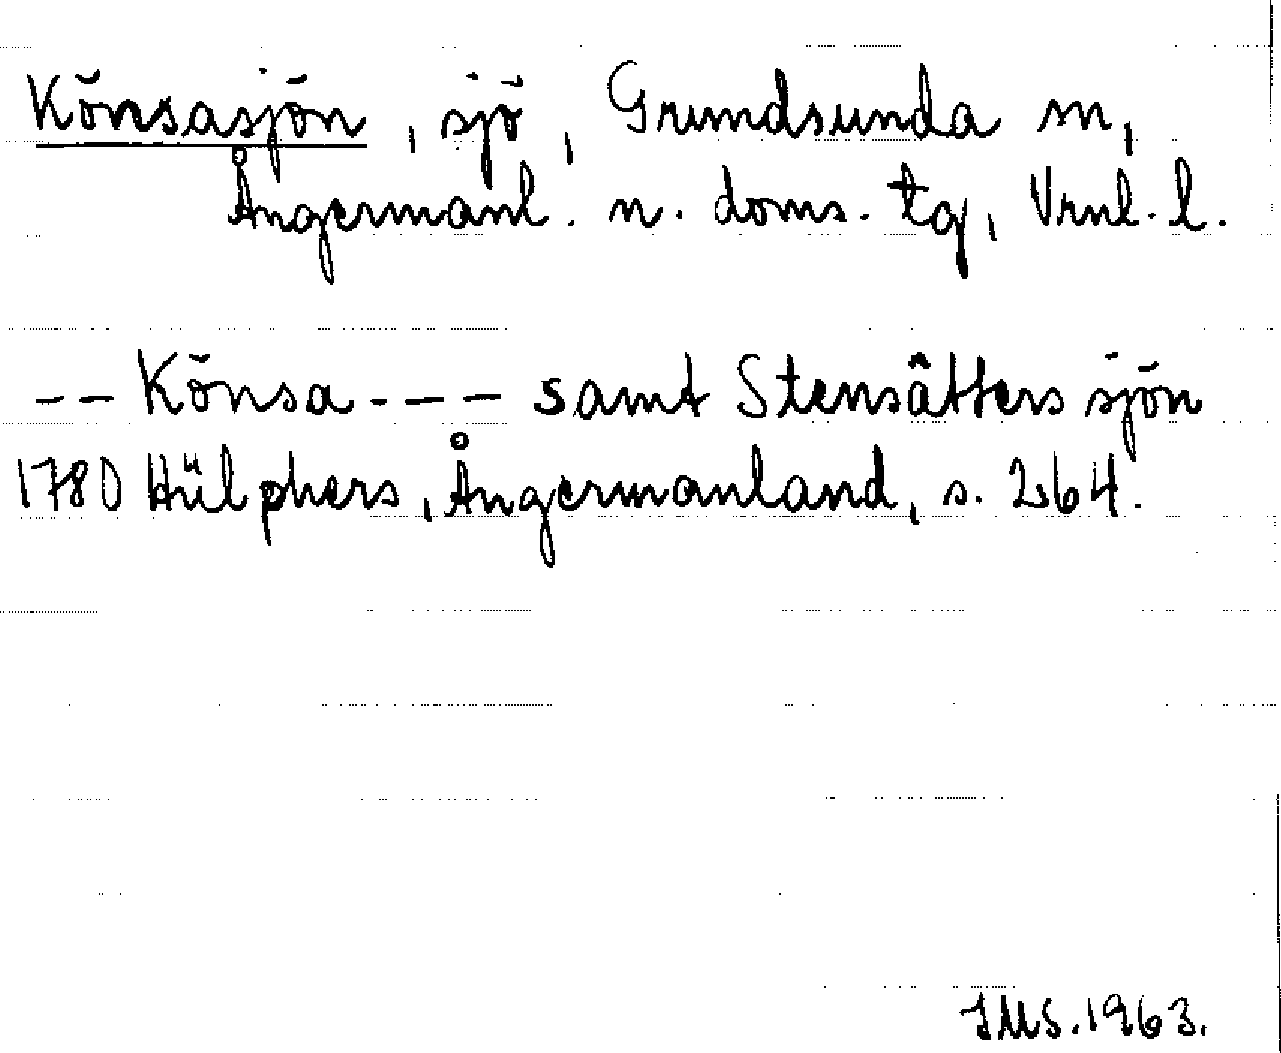 Könsasjön, sjö, Grundsunda sn,
Ångermanl. n. doms. tg, Vrnl. l.
-- Könsa---- samt Stensätters sjön
1780 Hülphers, Ångermanland, s. 264.
IMS. 1963.